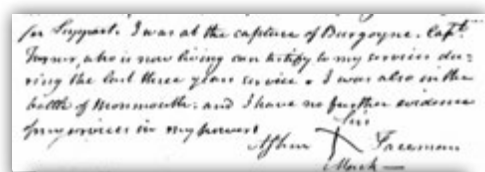 for Support. I was at the capture of Burgoyne. Capt
Turner, who is now living can testify to my services du=
ring the last three years service. I was also in the
battle of Monmouth. and I have no further evidence
of my services in my power
his
Freeman
Mark